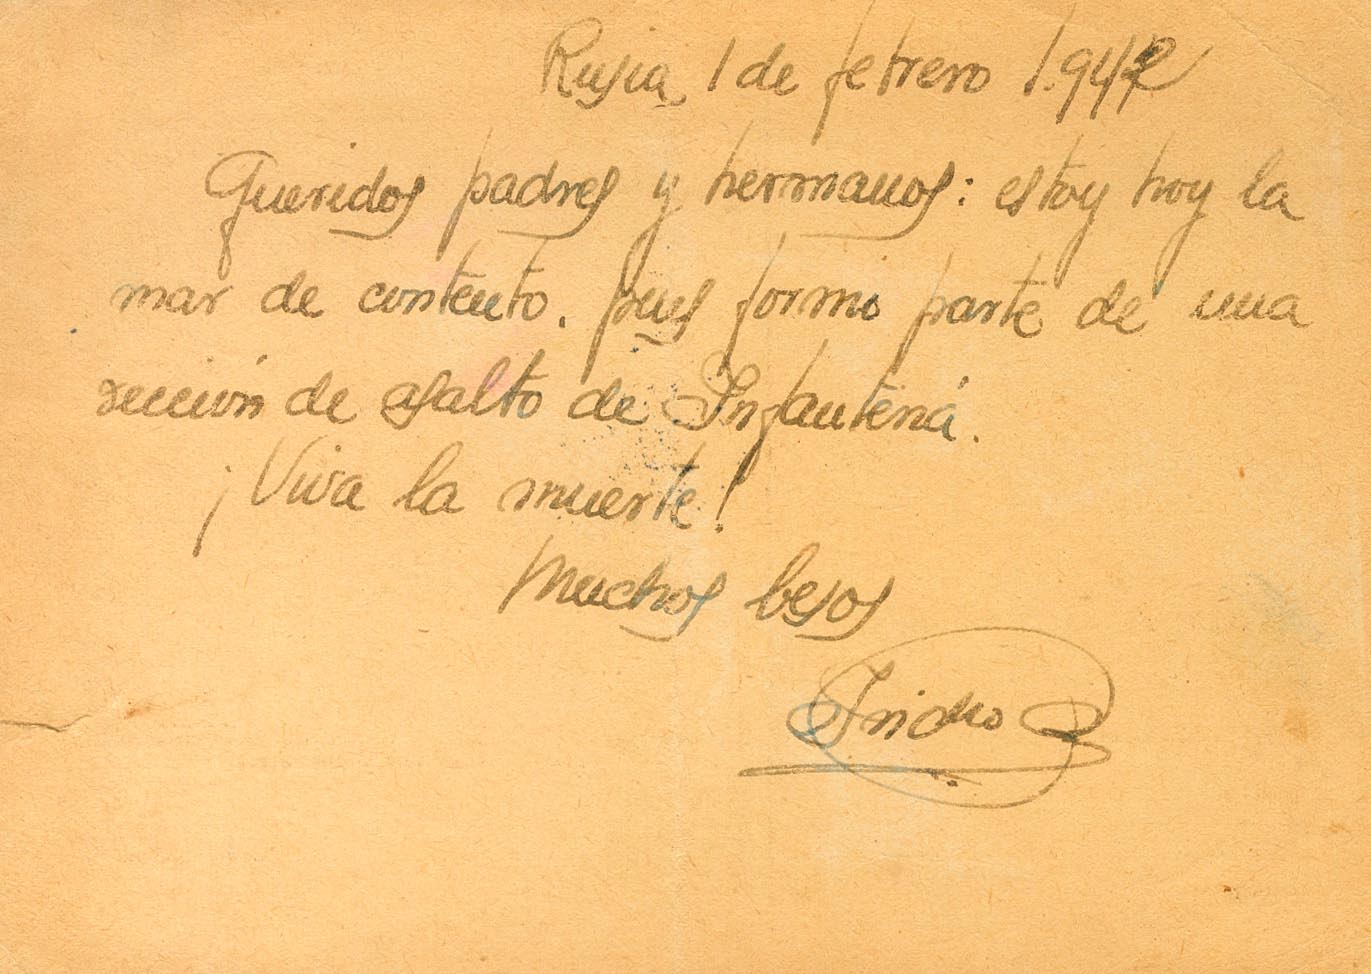 Rusia, 1 de febrero 1.942
Queridos padres y hermanos: estoy hoy la
mar de contento. pues formo parte de una
sección de asalto de Infantería.
¡Viva la muerte!
Muchos besos
Isidro